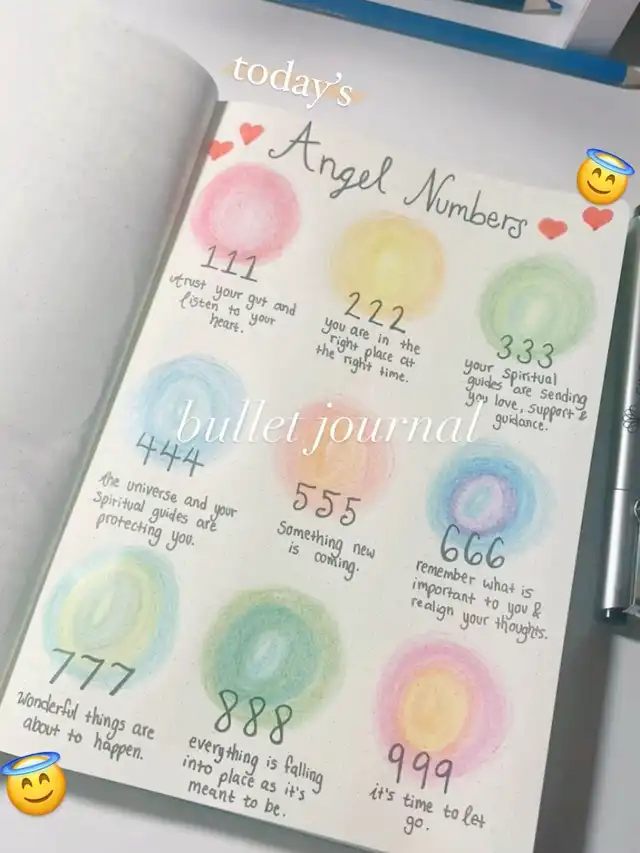 today's
Angel Numbers
111
trust your gut and
listen to your
heart.
222
you are in the
right place at
the right time.
333
your spiritual
guides are sending
you love, support &
guidance.
bullet journal
444
the universe and your
spiritual guides are
protecting you.
555
Something new
is coming.
666
remember what is
important to you &
realign your thoughts.
777
wonderful things are
about to happen.
888
everything is falling
into place as it's
meant to be.
999
it's time to let
go.